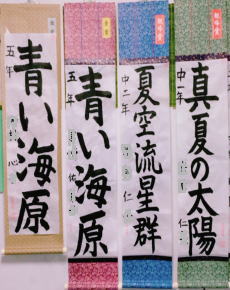 真夏の太陽
中一年
仁
夏空流星群
中二年
仁
青い海原
五年
佑
青い海原
五年
心